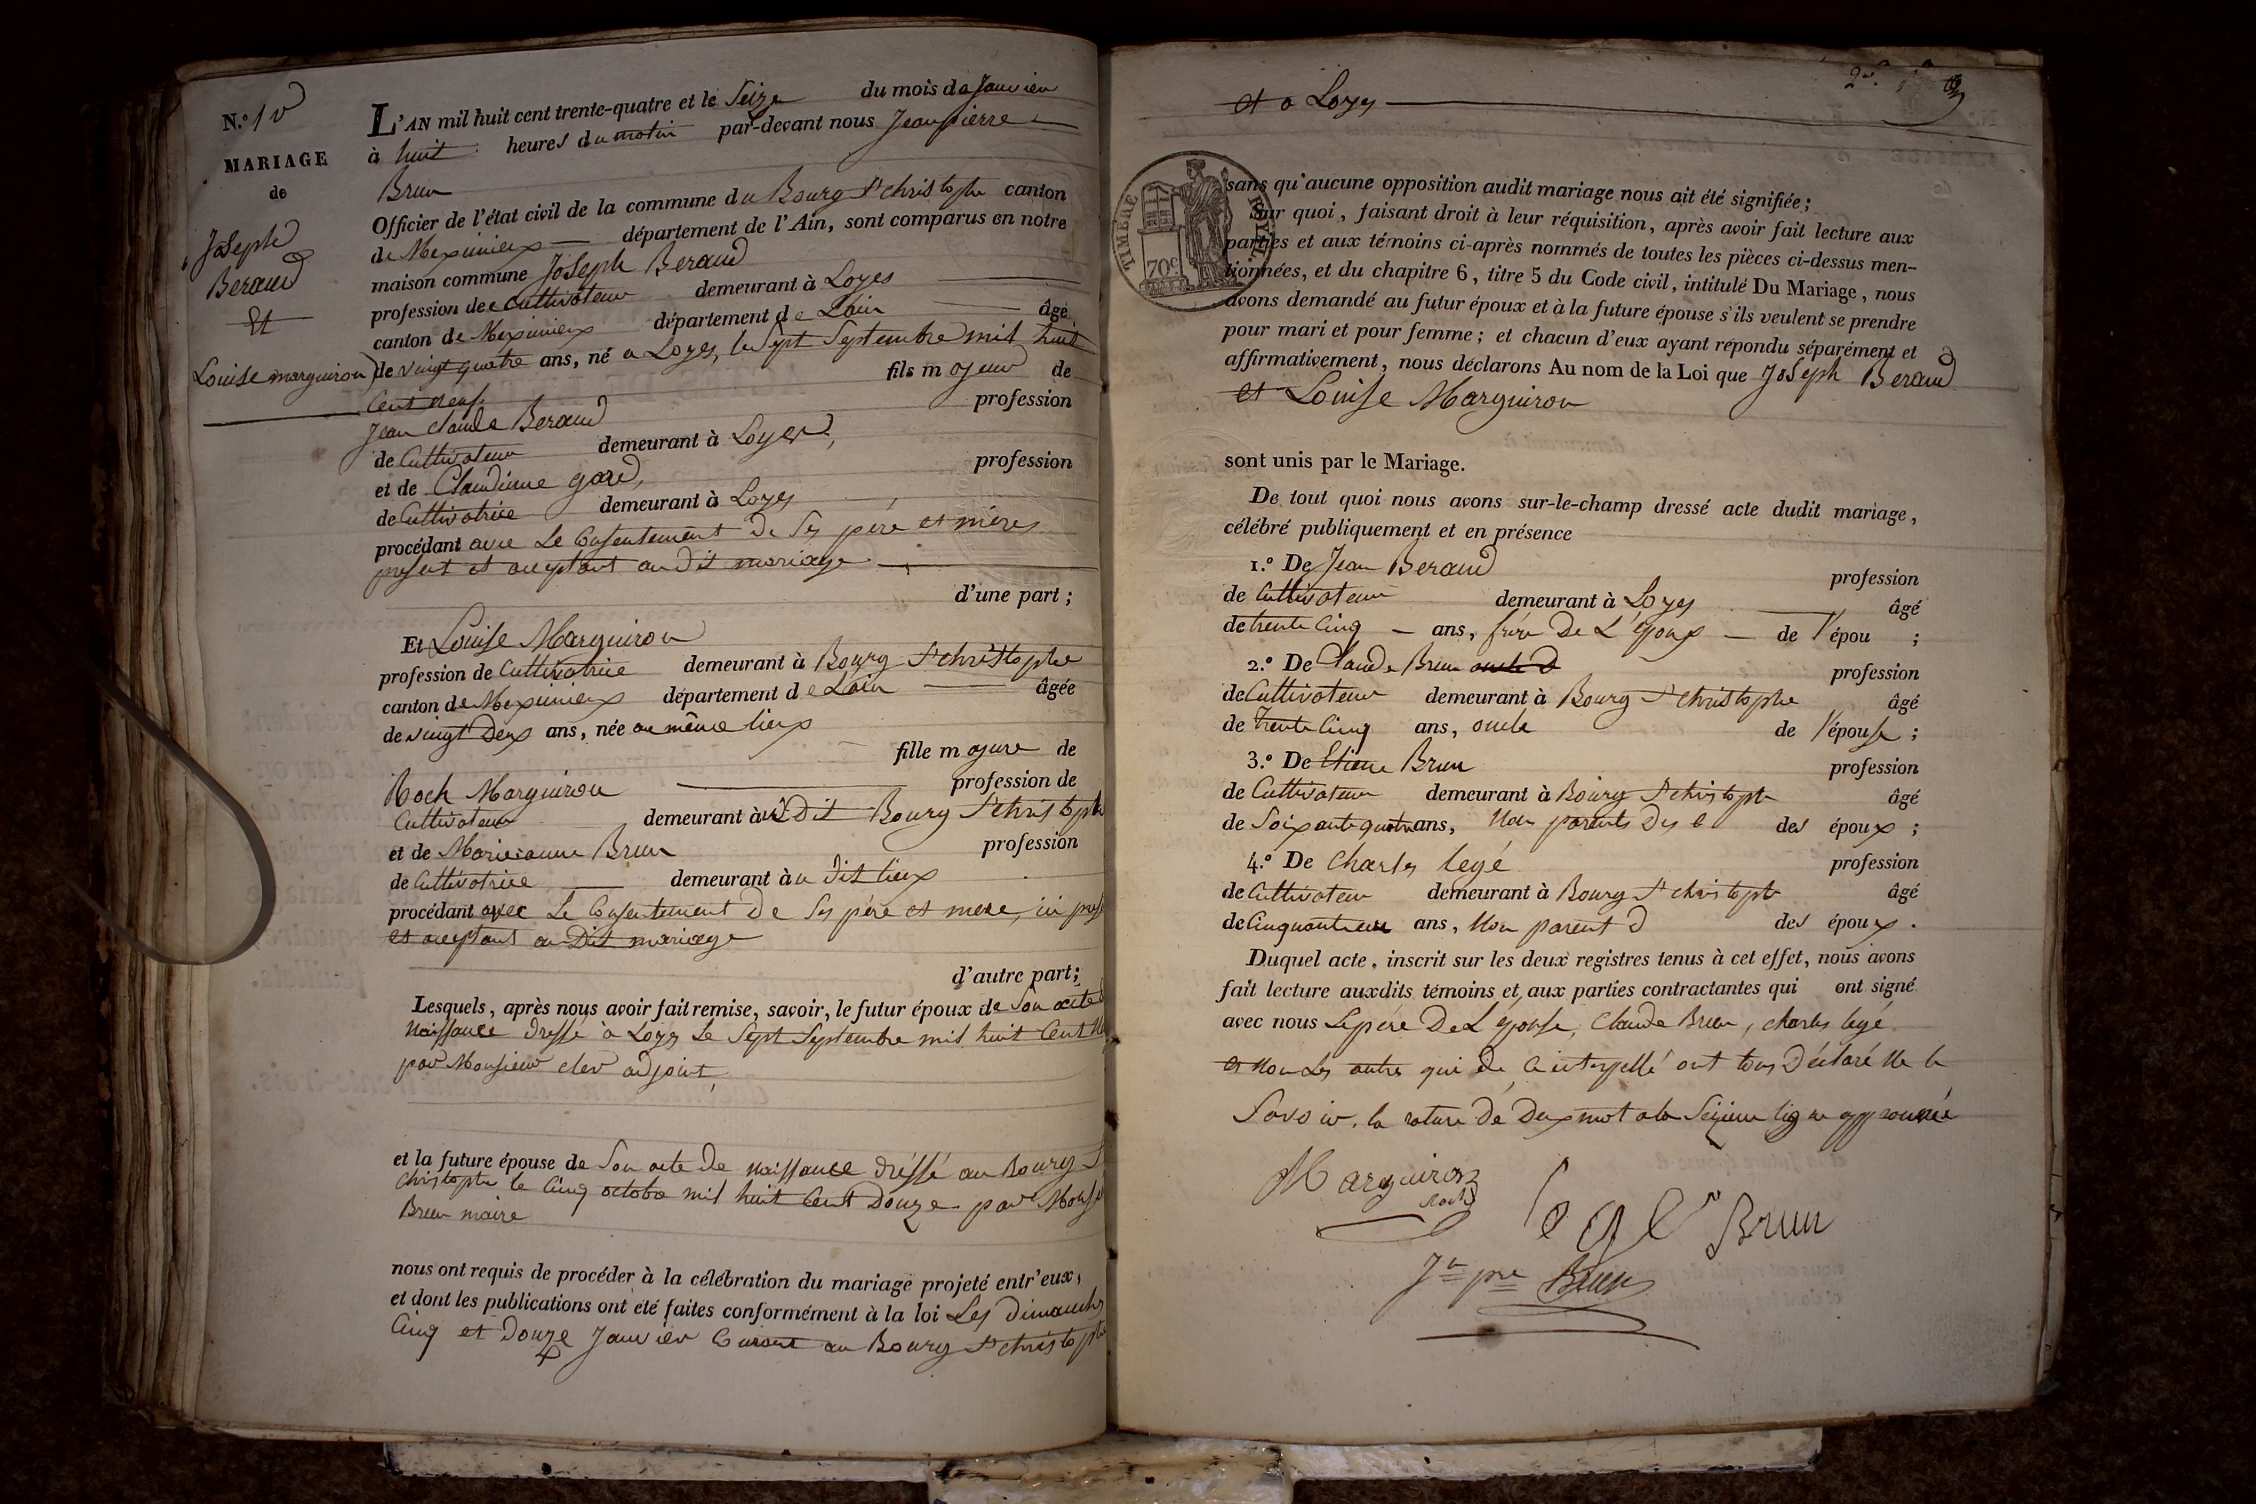 N.º 1
MARIAGE
de
Joseph
Beraud
Et
Louise marguiron
L'AN mil huit cent trente-quatre et le Seize du mois de Janvier
à huit heures du matin par-devant nous Jean pierre
Brun
Officier de l'état civil de la commune du Bourg St christophe canton
de Meximieux département de l'Ain, sont comparus en notre
maison commune Joseph Beraud
profession de Cultivateur demeurant à Loyes
canton de Meximieux département de Lain âgé
de vingt quatre ans, né a Loyes, le Sept Septembre mil huit
Cent neuf fils majeur de
Jean Claude Beraud profession
de Cultivateur demeurant à Loyes,
et de Claudine gard, profession
de Cultivatrice demeurant à Loyes
procédant avec Le Consentement De Ses père et mères
present et acceptant au Dit mariage
d'une part ;
Et Louise Marguiron
profession de Cultivatrice demeurant à Bourg St christophe
canton de Meximieux département de Lain âgée
de vingt Deux ans, née au même lieux
fille majeure de
Roch Marguiron profession de
Cultivateur demeurant à u Dit Bourg St christophe
et de Marieanne Brun profession
de Cultivatrice demeurant à u Dit lieux
procédant avec Le Consentement De Ses père et mere, ici pres
et acceptant au Dit mariage
d'autre part ;
Lesquels, après nous avoir fait remise, savoir, le futur époux de Son acte d
Naissance Dressé à Loyes Le Sept Septembre mil huit Cent
par Monsieur adjoint,
et la future épouse de Son acte De naissance dréssé au Bourg S
christophe le Cinq octobre mil huit Cent Douze par Mons
Brun maire
nous ont requis de procéder à la célébration du mariage projeté entr'eux,
et dont les publications ont été faites conformément à la loi Les Dimanches
Cinq et Douze Janvier Courant au Bourg St christophe
et a Loyes
TIMBRE ROYAL
70c
sans qu'aucune opposition audit mariage nous ait été signifiée ;
Sur quoi, faisant droit à leur réquisition, après avoir fait lecture aux
parties et aux témoins ci-après nommés de toutes les pièces ci-dessus men-
tionnées, et du chapitre 6, titre 5 du Code civil, intitulé Du Mariage, nous
avons demandé au futur époux et à la future épouse s'ils veulent se prendre
pour mari et pour femme ; et chacun d'eux ayant répondu séparément et
affirmativement, nous déclarons Au nom de la Loi que Joseph Beraud
et Louise Marguiron
sont unis par le Mariage.
De tout quoi nous avons sur-le-champ dressé acte dudit mariage,
célébré publiquement et en présence
1.º De Jean Beraud profession
de Cultivateur demeurant à Loyes âgé
de trente Cinq ans, frère De L'époux de l'épou ;
2.º De Claude Brun profession
de Cultivateur demeurant à Bourg St christophe âgé
de trente Cinq ans, oncle de l'épouse ;
3.º De Etiene Brun profession
de Cultivateur demeurant à Bourg St christophe âgé
de Soixante quatre ans, Non parents Des époux ;
4.º De Charles legé profession
de Cultivateur demeurant à Bourg St christophe âgé
de Cinquante ans, Non parent des époux.
Duquel acte, inscrit sur les deux registres tenus à cet effet, nous avons
fait lecture auxdits témoins et aux parties contractantes qui ont signé
avec nous Le père De L'épouse, Claude Brun, charles legé
et Non Les autres qui de ce interpellé ont tous Déclaré Ne le
Savoir. la rature de Deux mot a la Seizieme ligne approuvée
Marguiron
Roch
Legé Brun
Jn pre Brun